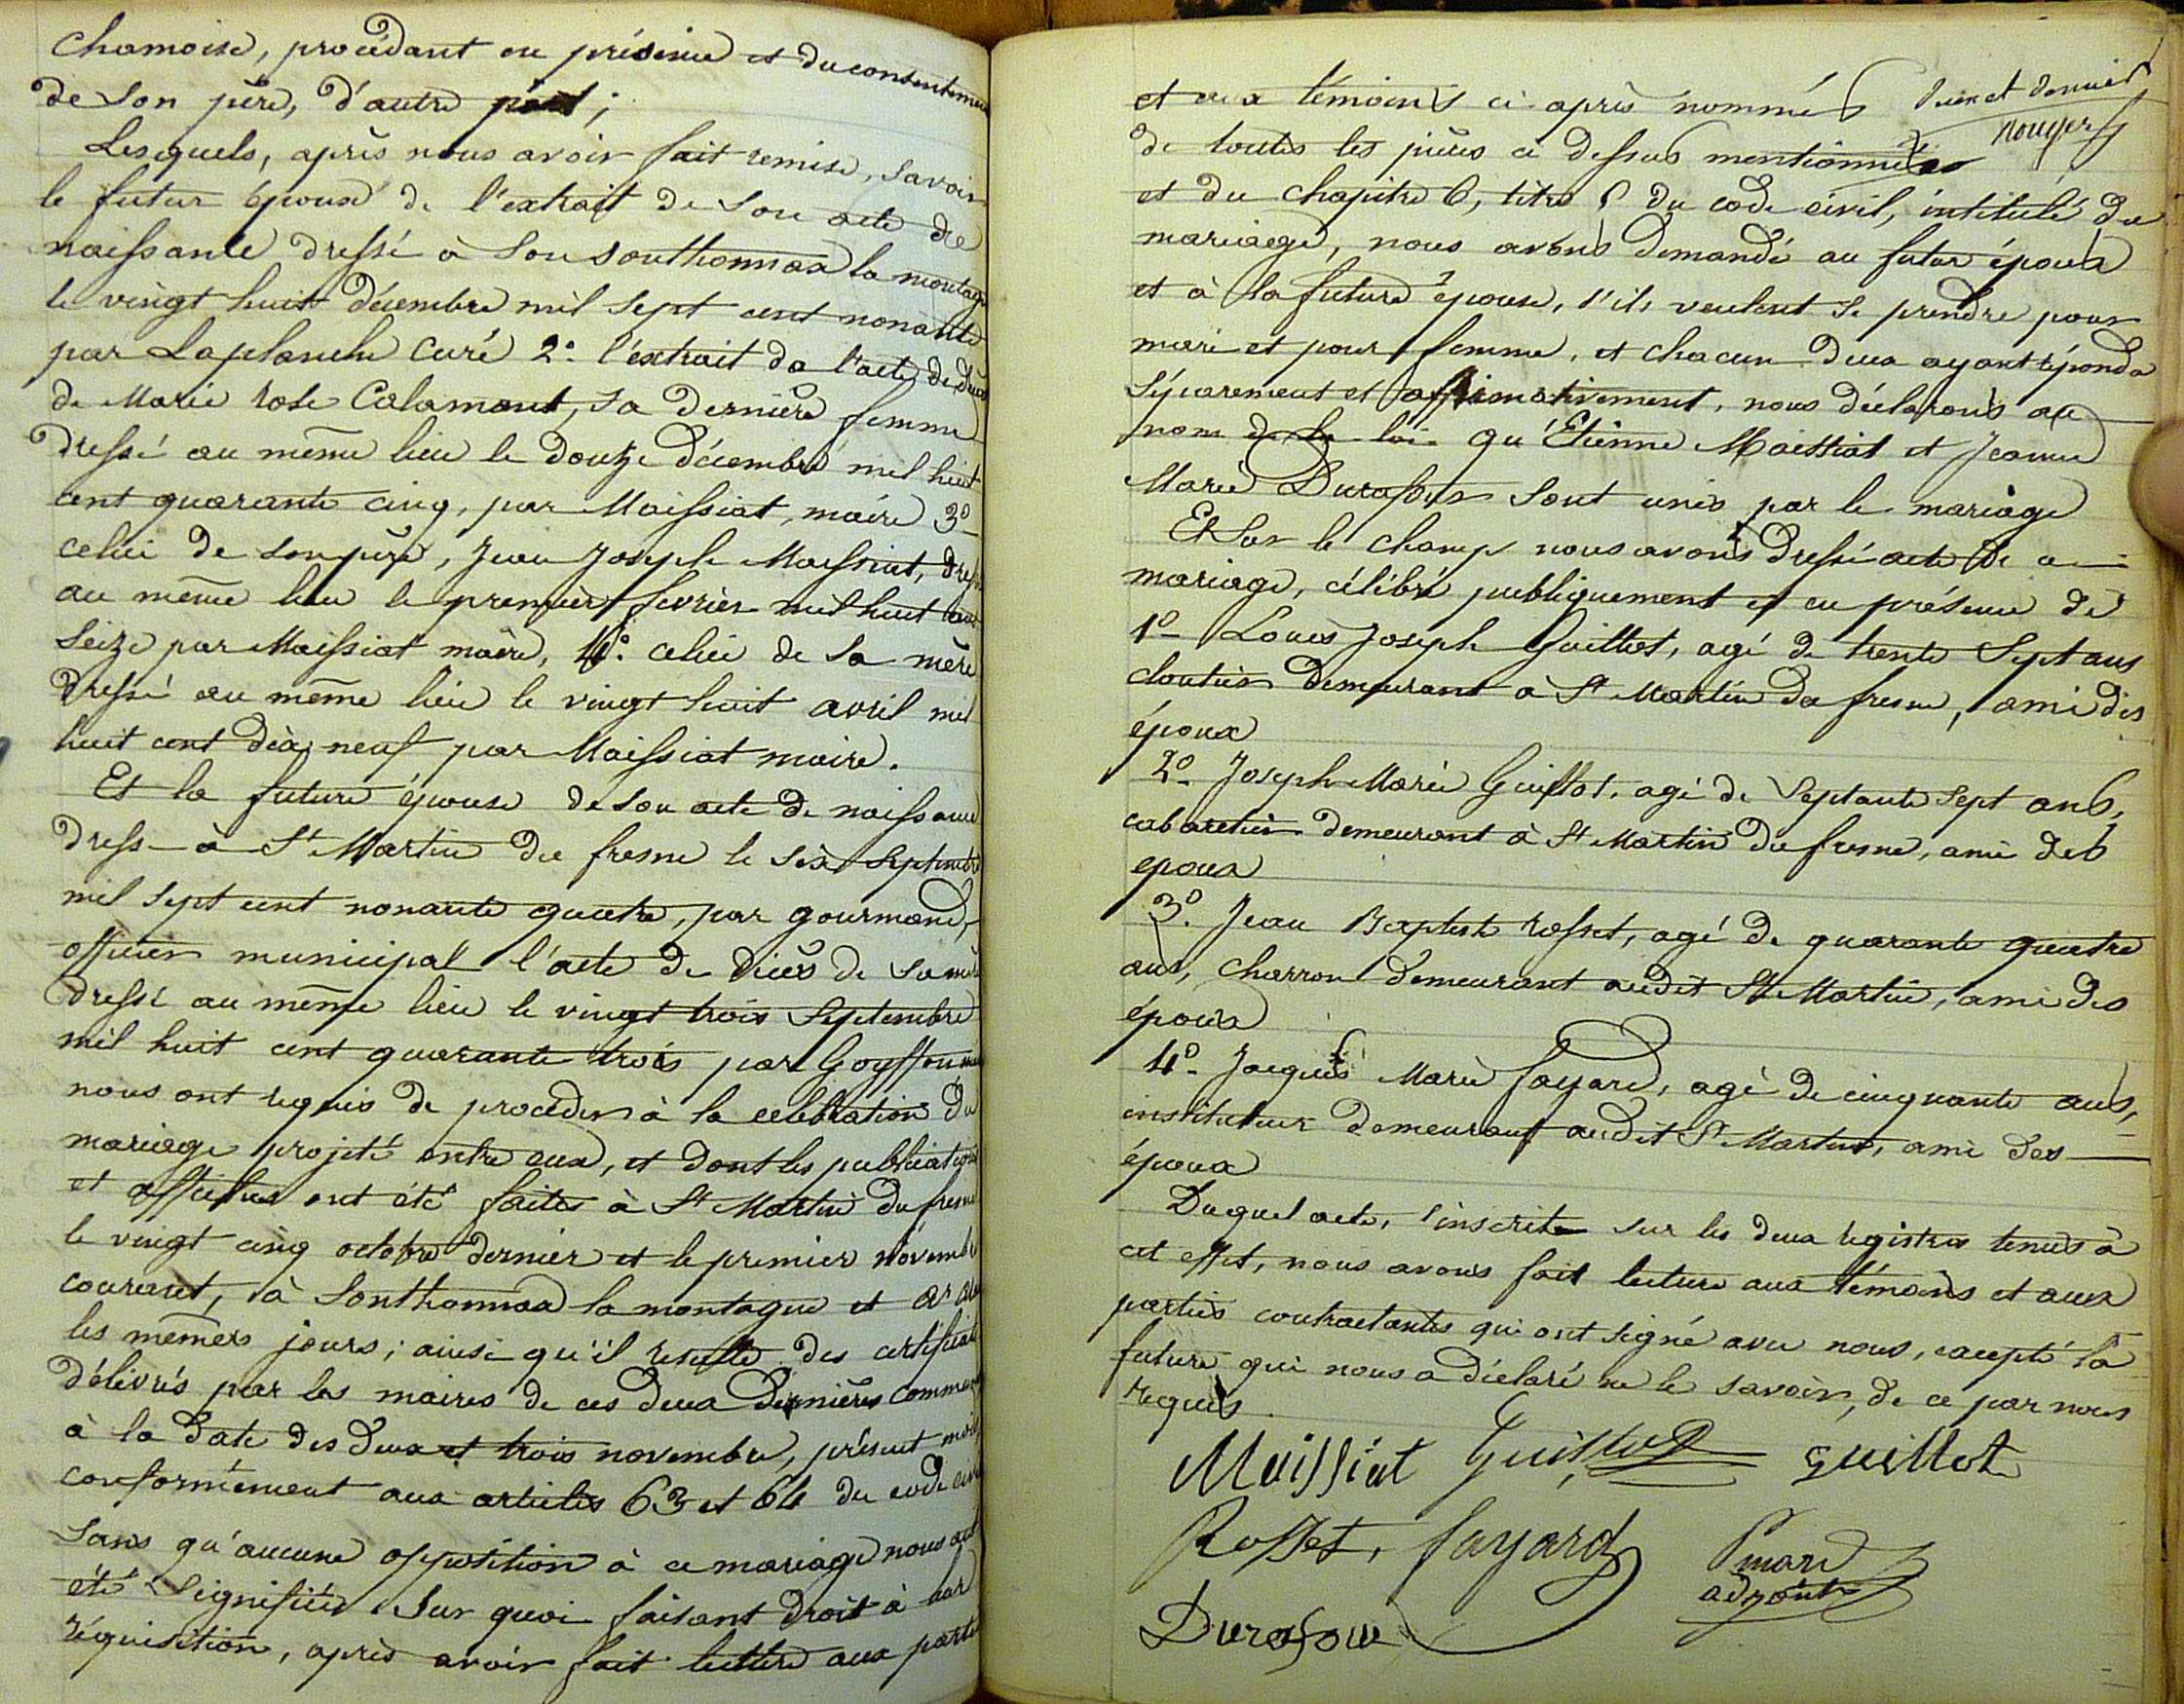 Chamoise, procédant en présence et du consentement
de son père, d'autre part;
Lesquels, après nous avoir fait remise, savoir
le futur époux de l'extrait de son acte de
naissance dressé à Son Southonnax la montagne
le vingt huit décembre mil sept cent nonante
par Laplanche Curé 2º l'extrait de l'acte de décès
de Marie rose Calamant, sa dernière femme
dressé au même lieu le douze décembre mil huit
cent quarante cinq, par Maissiat, maire 3º
celui de son père, Jean Joseph Maissiat, dressé
au même lieu le premier fevrier mil huit cent
seize par Maissiat maire, 4º celui de sa mère
dressé au même lieu le vingt huit avril mil
huit cent dix neuf par Maissiat maire.
Et la future épouse de son acte de naissance
dressé à St Martin du fresne le six septembre
mil sept cent nonante quatre, par gourmand,
officier municipal l'acte de décès de sa mère
dressé au même lieu le vingt trois septembre
mil huit cent quarante trois par Goyffon
nous ont requis de procéder à la celebration du
mariage projeté entre eux, et dont les publications
et affiches ont été faites à St Martin du fresne
le vingt cinq octobre dernier et le premier novembre
courant, à Sonthonnax la montagne et
les mêmes jours; ainsi qu'il resulte des certificats
délivrés par les maires de ces deux dernières communes
à la date des deux et trois novembre, présent mois
conformément aux articles 63 et 64 du code civil
Sans qu'aucune opposition à ce mariage nous ait
été signifiée. Sur quoi faisant droit à leur
réquisition, après avoir fait lecture aux parties
et aux témoins ci-après nommés
nouyer
de toutes les pièces ci dessus mentionnées
et du chapitre 6, titre 5 du code civil, intitulé du
mariage, nous avons demandé au futur époux
et à la future épouse, s'ils veulent se prendre pour
mari et pour femme, et chacun d'eux ayant répondu
séparement et affirmativement, nous déclarons au
nom de la loi qu'Etienne Maissiat et Jeanne
Marie Durafour sont unis par le mariage
Et Sur le champ nous avons dressé acte de ce
mariage, célébré publiquement et en présence de
1º Louis Joseph Guillot, agé de trente sept ans
cloutier demeurant à St Martin du fresne, ami des
époux
2º Joseph Marie Guillot, agé de septante sept ans,
cabaretier demeurant à St Martin du fresne, ami des
epoux
3º. Jean Baptiste rosset, agé de quarante quatre
ans, charron demeurant audit St Martin, ami des
époux
4º Jacques Marie fayard, agé de cinquante ans,
instituteur demeurant audit St Martin, ami des
époux
Duquel acte, inscrit sur les deux registres tenus à
cet effet, nous avons fait lecture aux témoins et aux
parties contractantes qui ont signé avec nous, excepté la
future qui nous a déclaré ne le savoir, de ce par nous
requis.
Maissiat Guillot Guillot
Rosset, fayard
adjoint
Durafour